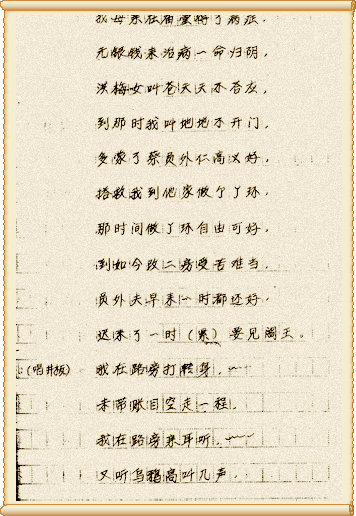 母亲在庙里得了病症,
无银钱来治病一命归阴,
洪梅女叫苍天天不答应,
到那时我叫地地不开门,
多蒙了蔡员外仁高义好,
搭救我到他家做个丫环,
那时间做丫环自由可好,
到如今改二房受苦难当,
员外夫早来一时都还好,
迟来了一时(累)要见阎王。
(唱井板) 我在路旁打转身,
未带账目空走一程,
我在路旁来耳听,
又听乌鸦高叫几声,